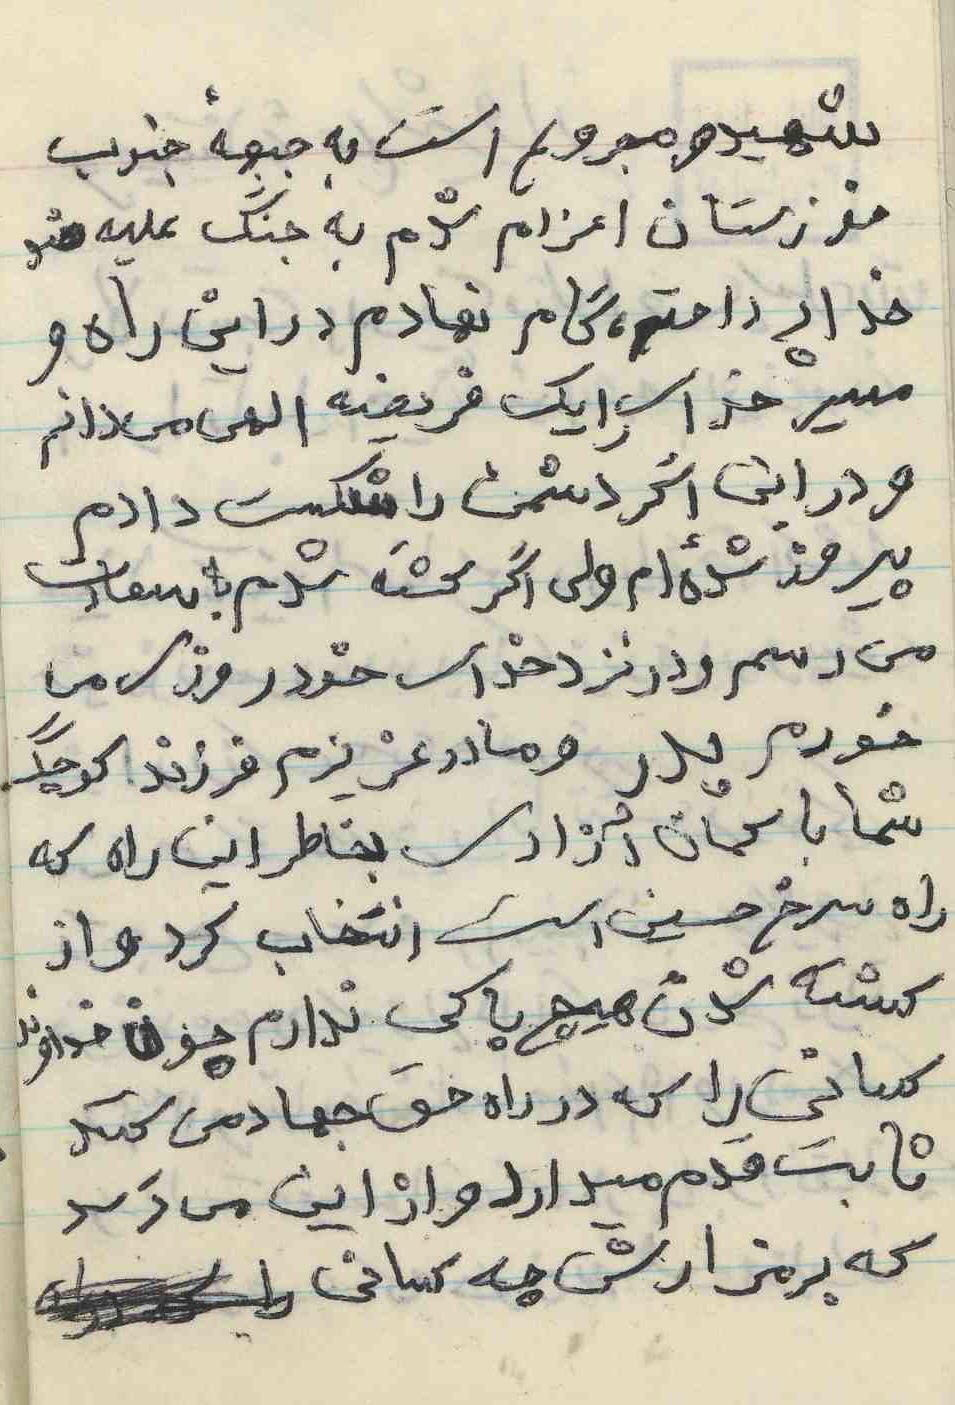 شهید و مجروح است به جبههٔ جنوب
خوزستان اعزام شدم به جنگ علیه ضد
خدایی رامتی، گام نهادم در این راه و
مسیر خدا را یک فریضه الهی می‌دانم
و در این اگر دشمن را شکست دادم
پیروز شده‌ام ولی اگر کشته شدم با سعادت
می رسم و در نزد خدای خود روزی می
خورم پدر و مادر عزیزم فرزند کوچک
شما با کمان آزادی بخاطر این راه که
راه سرخ حسین است انتخاب کرد و از
کشته شدن هیچ باکی ندارم چون خداوند
کسانی را که در راه حق جهاد می کنند
ثابت قدم میدارد و از این می ترسد
که بر مزارش چه کسانی را